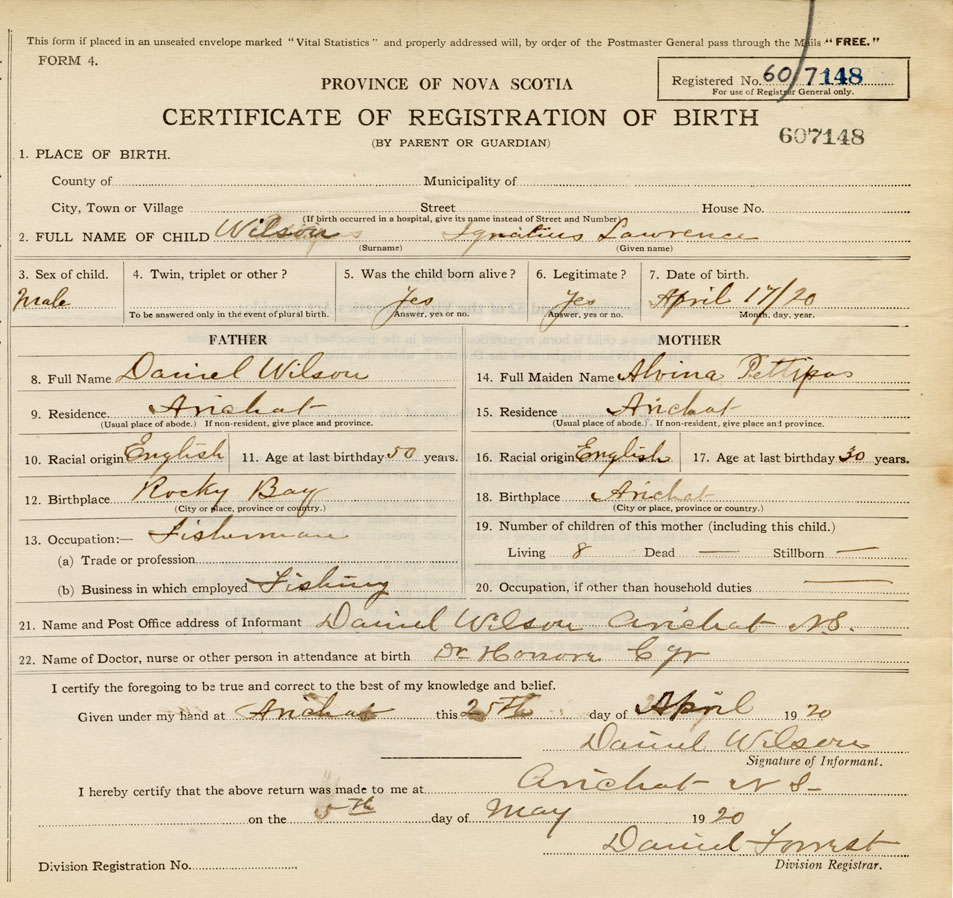 This form if placed in an unsealed envelope marked "Vital Statistics" and properly addressed will, by order of the Postmaster General pass through the Mails "FREE."
FORM 4.
Registered No. 60/7148
For use of Registrar General only.
PROVINCE OF NOVA SCOTIA
CERTIFICATE OF REGISTRATION OF BIRTH
607148
(BY PARENT OR GUARDIAN)
1. PLACE OF BIRTH.
County of Municipality of
City, Town or Village Street House No.
(If birth occurred in a hospital, give its name instead of Street and Number)
2. FULL NAME OF CHILD Wilson Ignatius Lawrence
(Surname) (Given name)
3. Sex of child. 4. Twin, triplet or other? 5. Was the child born alive? 6. Legitimate? 7. Date of birth.
Male Yes Yes April 17/20
To be answered only in the event of plural birth. Answer, yes or no. Answer, yes or no. Month, day, year.
FATHER MOTHER
8. Full Name Daniel Wilson 14. Full Maiden Name Alvina Pettipas
9. Residence Arichat 15. Residence Arichat
(Usual place of abode.) If non-resident, give place and province. (Usual place of abode.) If non-resident, give place and province.
10. Racial origin English 11. Age at last birthday 50 years. 16. Racial origin English 17. Age at last birthday 30 years.
12. Birthplace Rocky Bay 18. Birthplace Arichat
(City or place, province or country.) (City or place, province or country.)
13. Occupation:— Fisherman 19. Number of children of this mother (including this child.)
(a) Trade or profession Living 8 Dead — Stillborn —
(b) Business in which employed Fishing 20. Occupation, if other than household duties —
21. Name and Post Office address of Informant Daniel Wilson Arichat N.S.
22. Name of Doctor, nurse or other person in attendance at birth Dr
I certify the foregoing to be true and correct to the best of my knowledge and belief.
Given under my hand at Arichat this 25th day of April 1920
Daniel Wilson
Signature of Informant.
I hereby certify that the above return was made to me at Arichat N S
on the 5th day of May 1920
Daniel Forrest
Division Registrar.
Division Registration No.